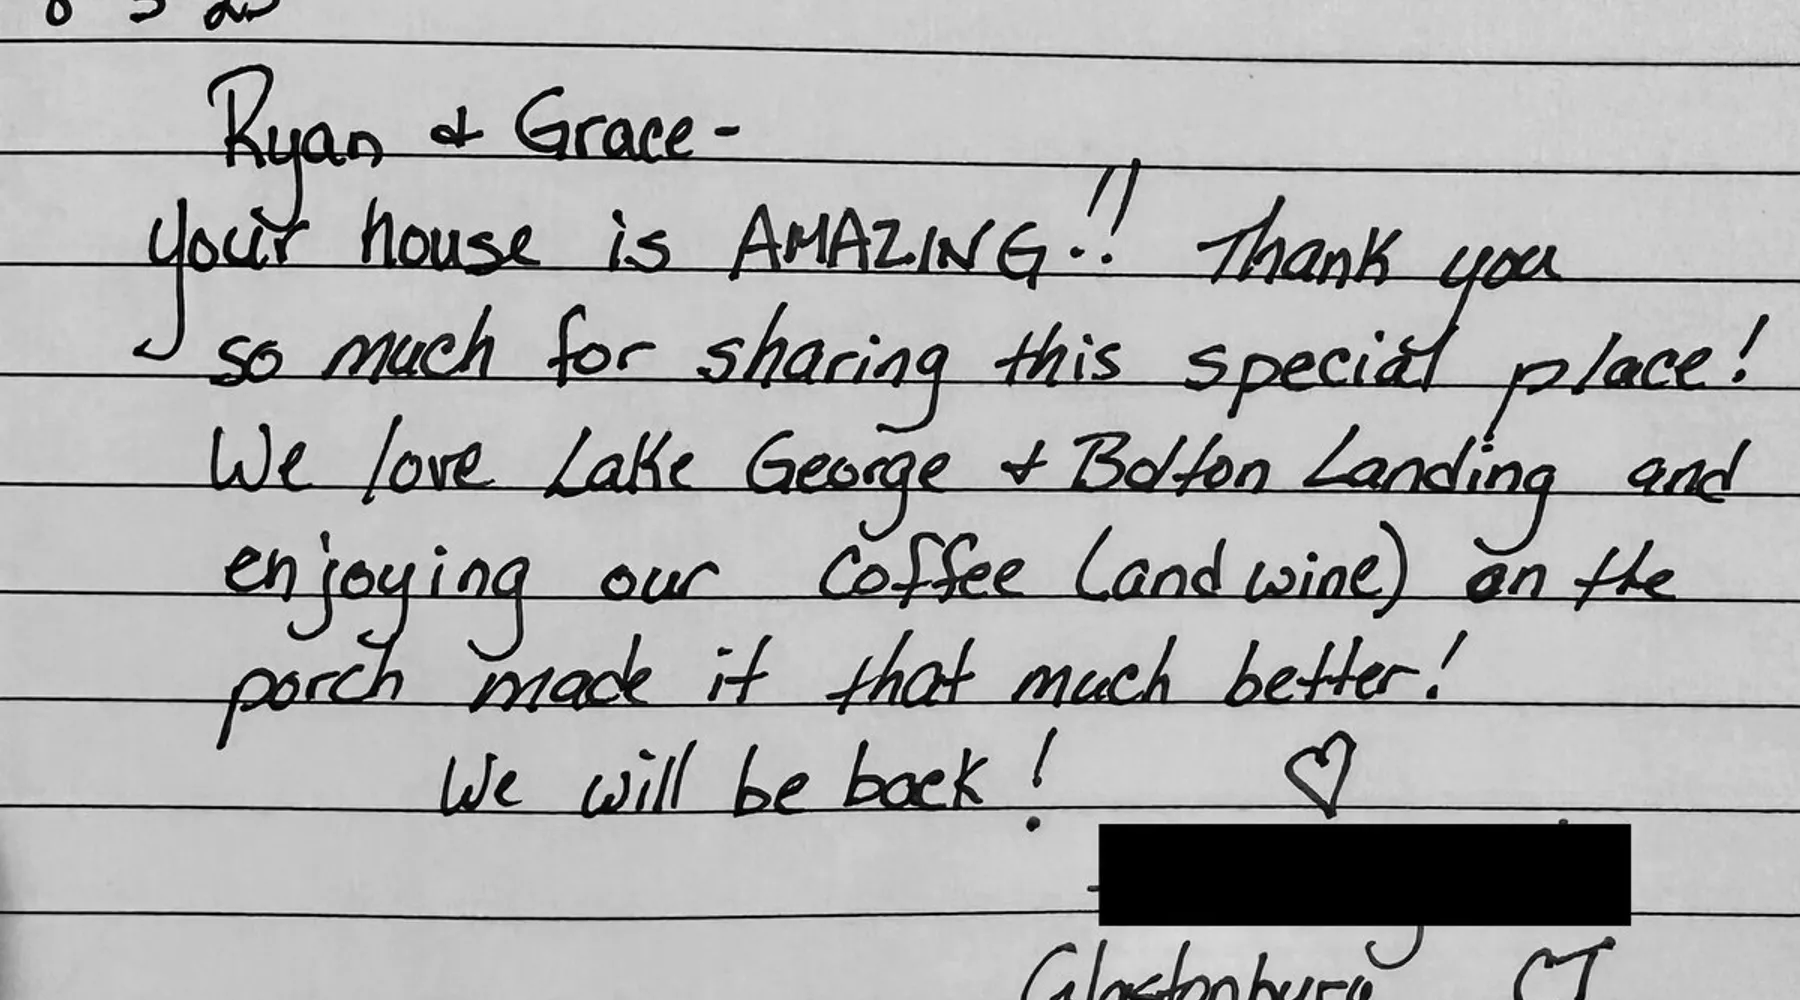 Ryan & Grace -
your house is AMAZING!! Thank you
so much for sharing this special place!
We love Lake George & Bolton Landing and
enjoying our coffee (and wine) on the
porch made it that much better!
We will be back! ♡
Glastonbury CT